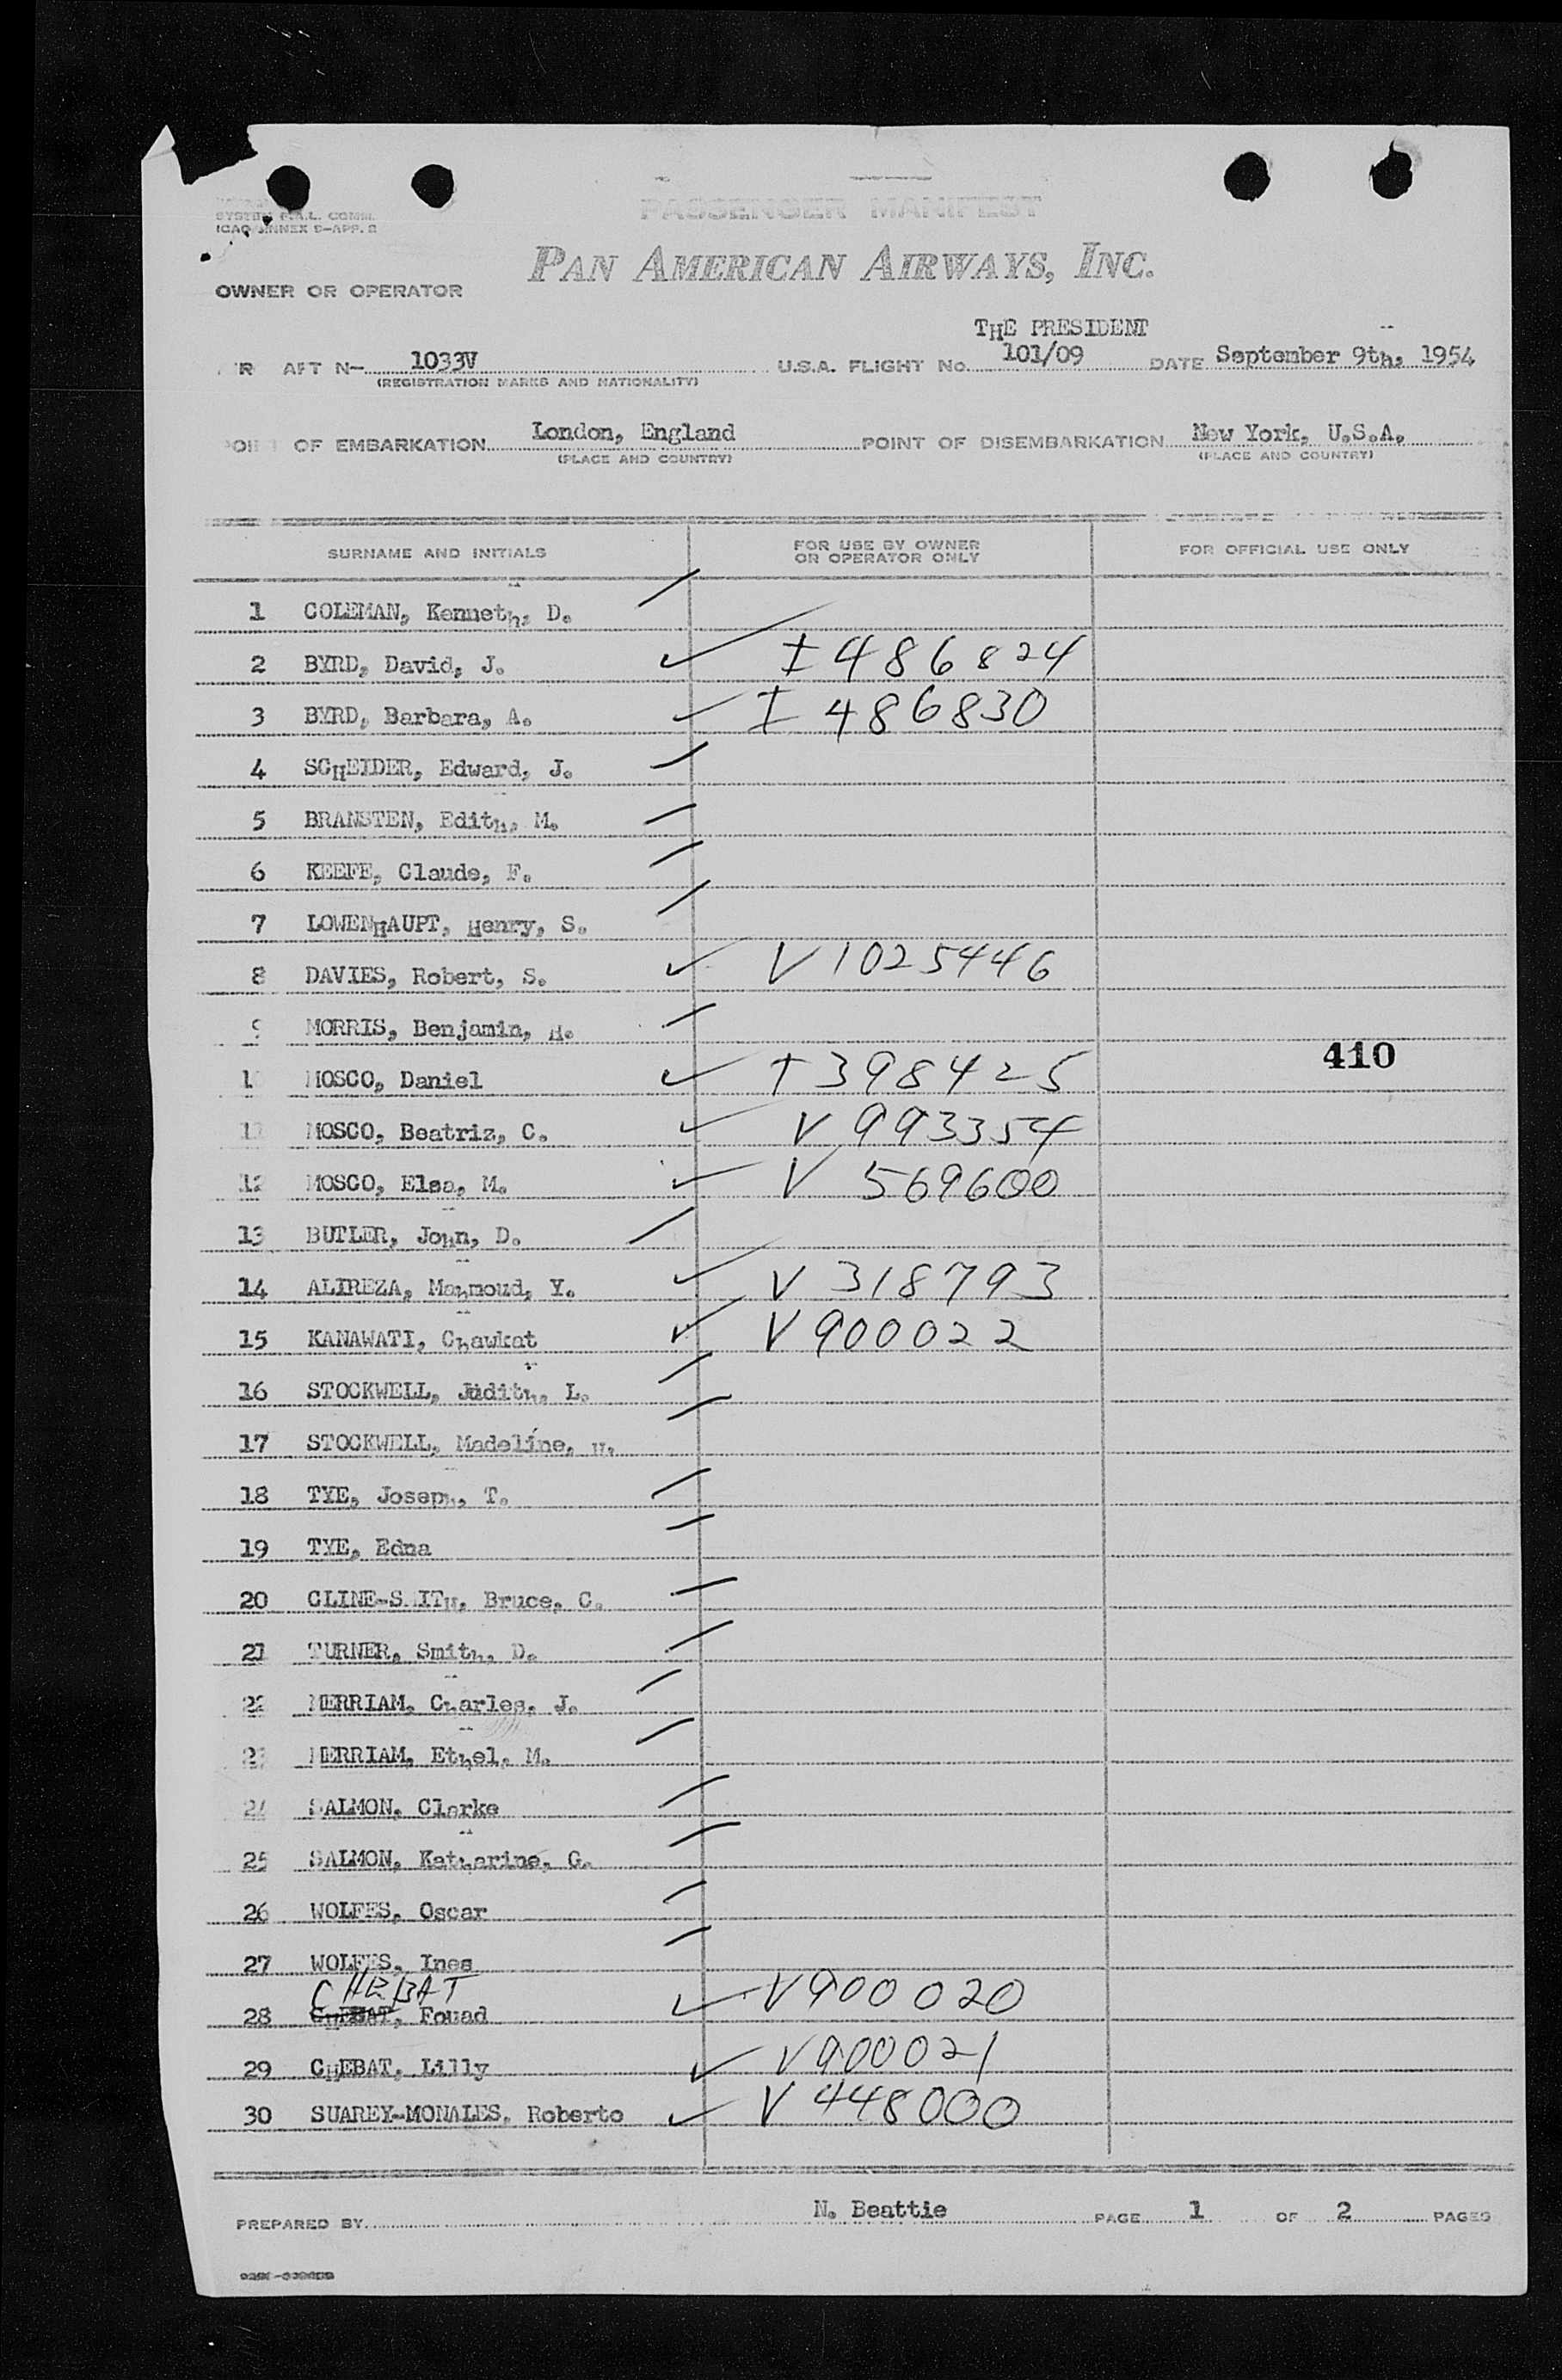 PASSENGER MANIFEST
ICAO ANNEX 9-APP. 2
PAN AMERICAN AIRWAYS, INC.
OWNER OR OPERATOR
THE PRESIDENT
AFT N- 1033V U.S.A. FLIGHT No. 101/09 DATE September 9th, 1954
(REGISTRATION MARKS AND NATIONALITY)
OF EMBARKATION London, England POINT OF DISEMBARKATION New York, U.S.A.
(PLACE AND COUNTRY) (PLACE AND COUNTRY)
SURNAME AND INITIALS FOR USE BY OWNER OR OPERATOR ONLY FOR OFFICIAL USE ONLY
1 COLEMAN, Kenneth, D.
2 BYRD, David, J. I 486824
3 BYRD, Barbara, A. I 486830
4 SCHEIDER, Edward, J.
5 BRANSTEN, Edith, M.
6 KEEFE, Claude, F.
7 LOWENHAUPT, Henry, S.
8 DAVIES, Robert, S. V 1025446
9 MORRIS, Benjamin, H.
410
10 MOSCO, Daniel I 398425
11 MOSCO, Beatriz, C. V 993354
12 MOSCO, Elsa, M. V 569600
13 BUTLER, John, D.
14 ALIREZA, Mahmoud, Y. V 318793
15 KANAWATI, Chawkat V 900022
16 STOCKWELL, Judith, L.
17 STOCKWELL, Madeline, H.
18 TYE, Joseph, T.
19 TYE, Edna
20 CLINE-SMITH, Bruce, C.
21 TURNER, Smith, D.
22 MERRIAM, Charles, J.
23 MERRIAM, Ethel, M.
24 SALMON, Clarke
25 SALMON, Katharine, G.
26 WOLFES, Oscar
27 WOLFES, Ines
CHEBAT
28 CHEBAT, Fouad V 900020
29 CHEBAT, Lilly V 900021
30 SUAREY-MONALES, Roberto V 448000
PREPARED BY N. Beattie PAGE 1 OF 2 PAGES